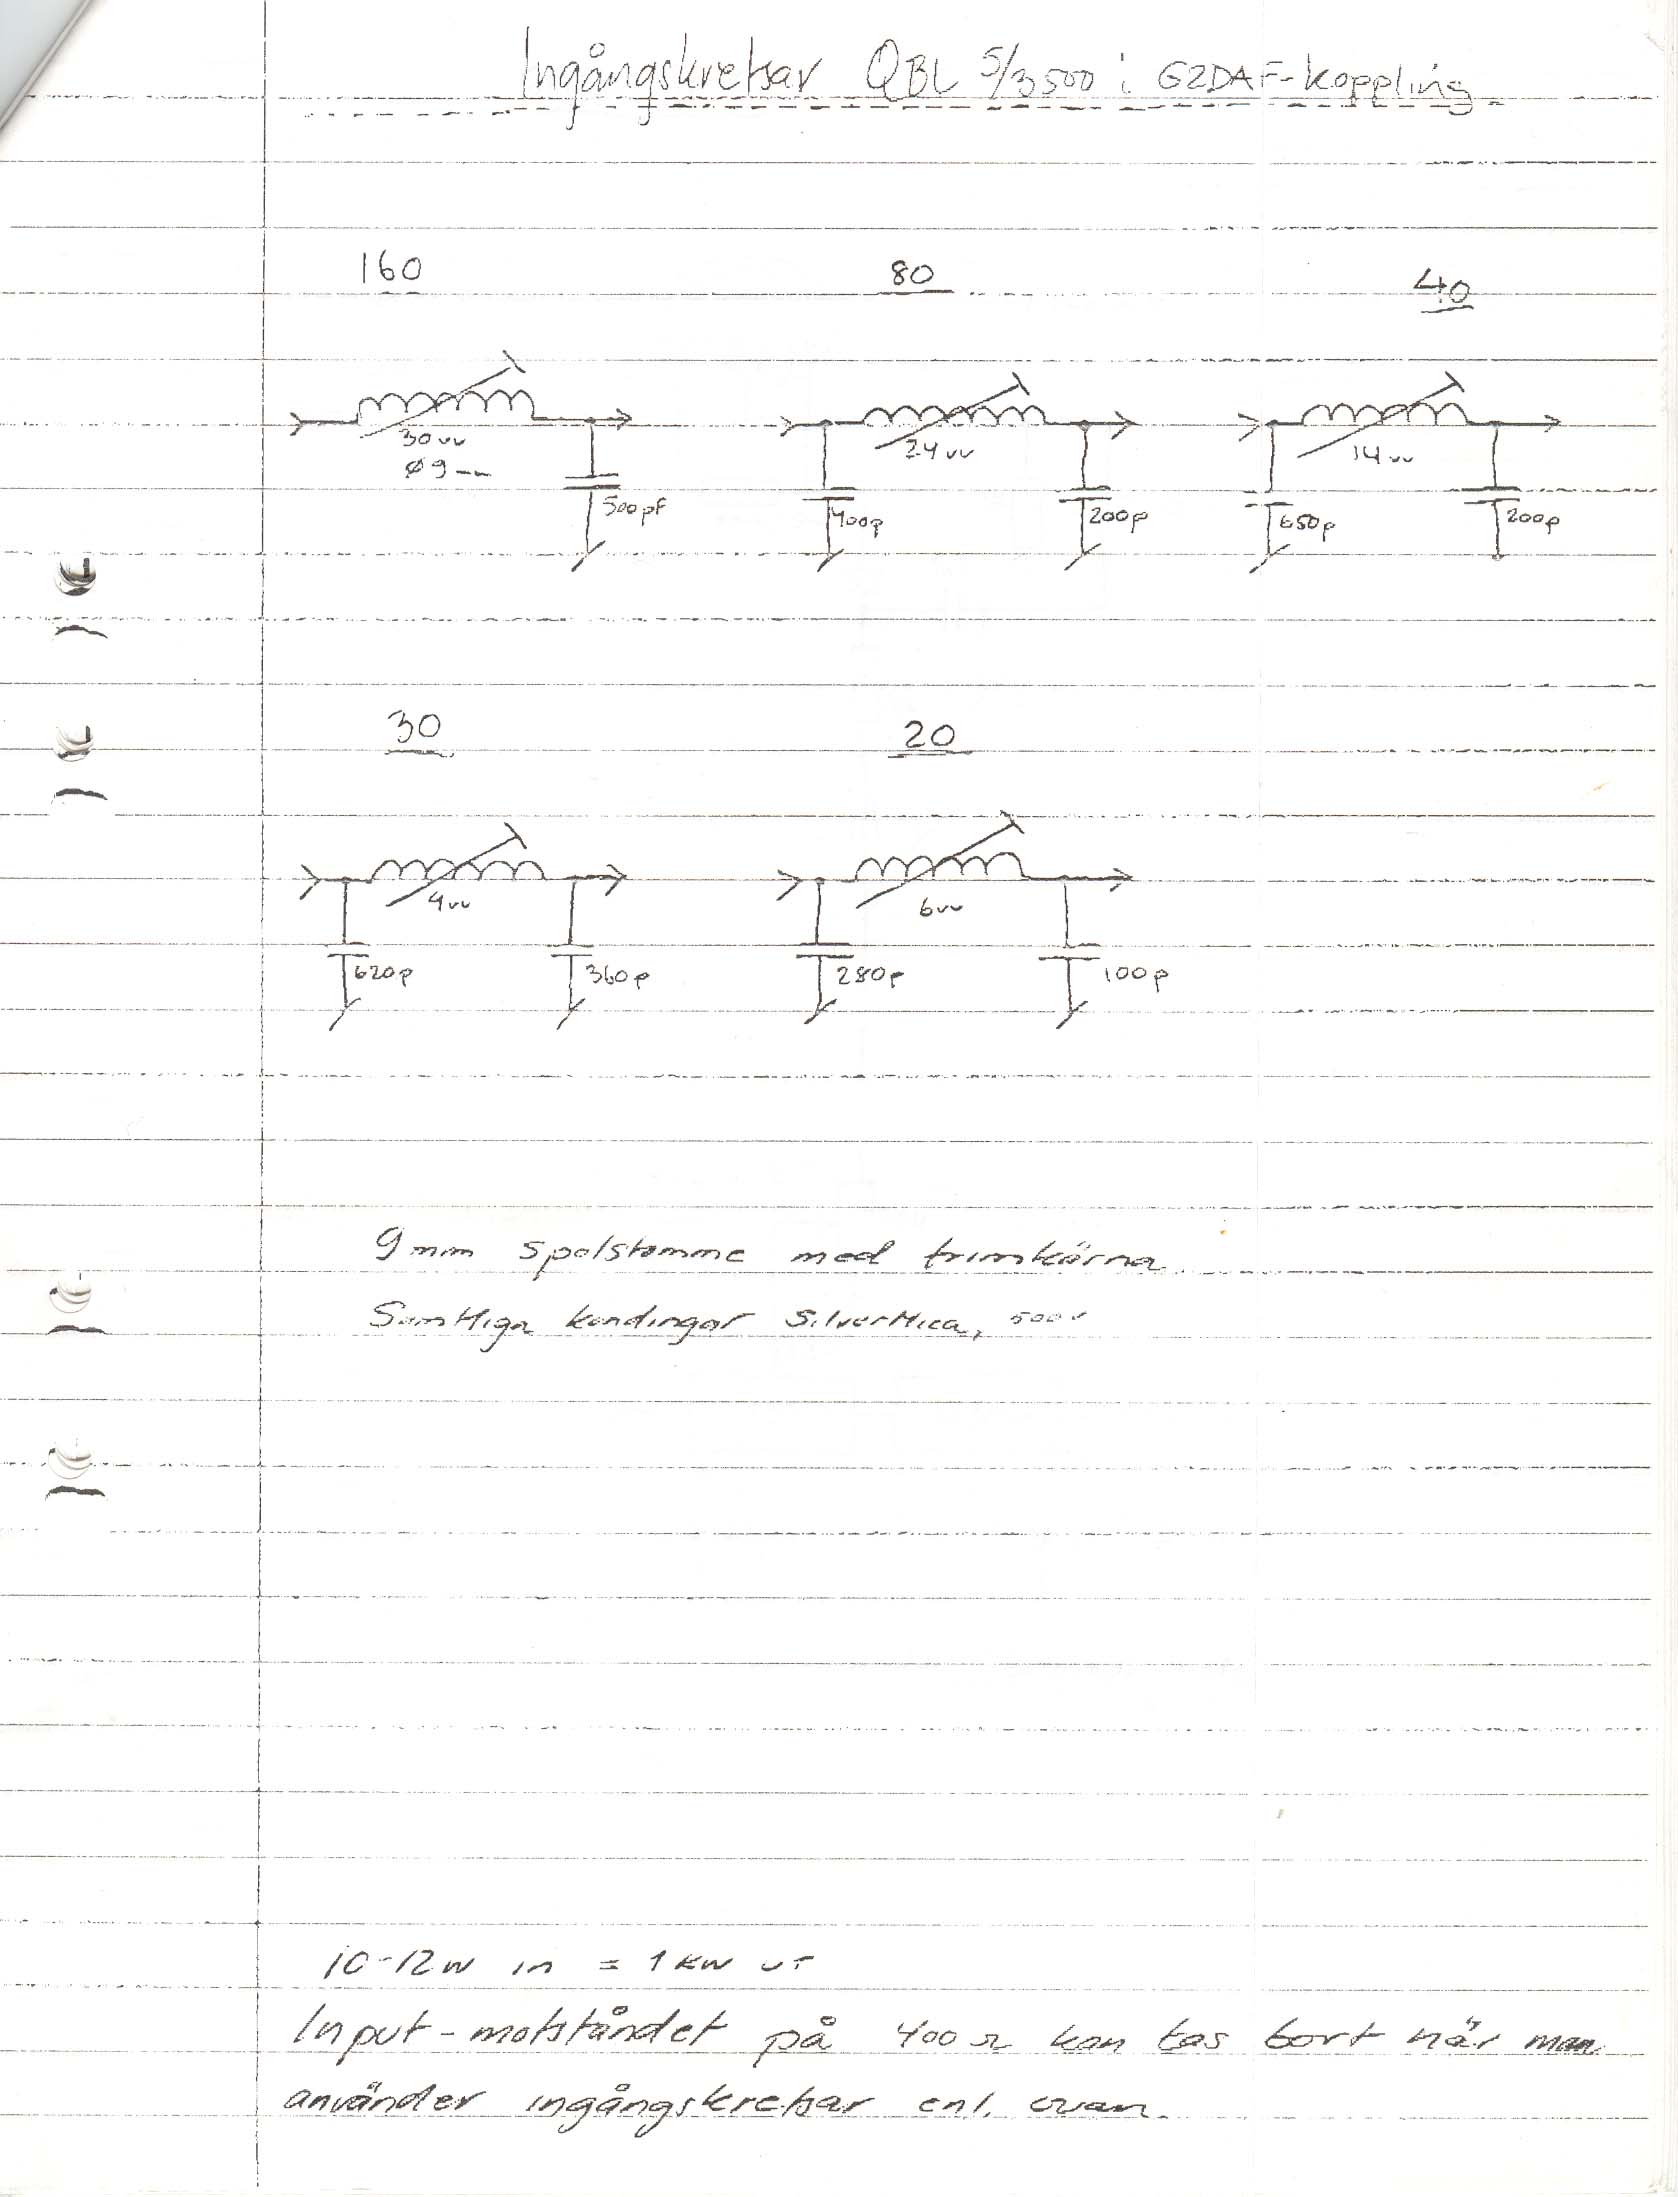 Ingångskretsar QBL 5/3500 i G2DAF-koppling
160 80 40
30vv 24vv 14vv
Ø9mm
500pf 400p 200p 650p 200p
30 20
9vv 6vv
620p 360p 280p 100p
9mm spolstomme med trimkärna
Samtliga kondingar SilverMica, 500v
10-12W in = 1KW ut
Input-motståndet på 400Ω kan tas bort när man
använder ingångskretsar enl. ovan.